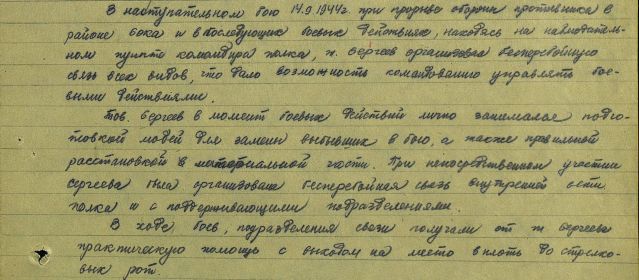 В наступательном бою 14.9.1944г. при прорыве обороны противника в
районе бока и в последующих боевых действиях, находясь на наблюдатель-
ном пункте командира полка, т. Сергеев организовал бесперебойную
связь всех видов, что дало возможность командованию управлять бое-
выми действиями.
Тов. Сергеев в момент боевых действий лично занимался подго-
товкой людей для замены выбывших в бою, а также правильной
расстановкой в материальной части. При непосредственном участии
Сергеева была организована бесперебойная связь внутренней сети
полка и с поддерживающими подразделениями.
В ходе боев, подразделения связи получали от т. Сергеева
практическую помощь с выходом на место вплоть до стрелко-
вых рот.